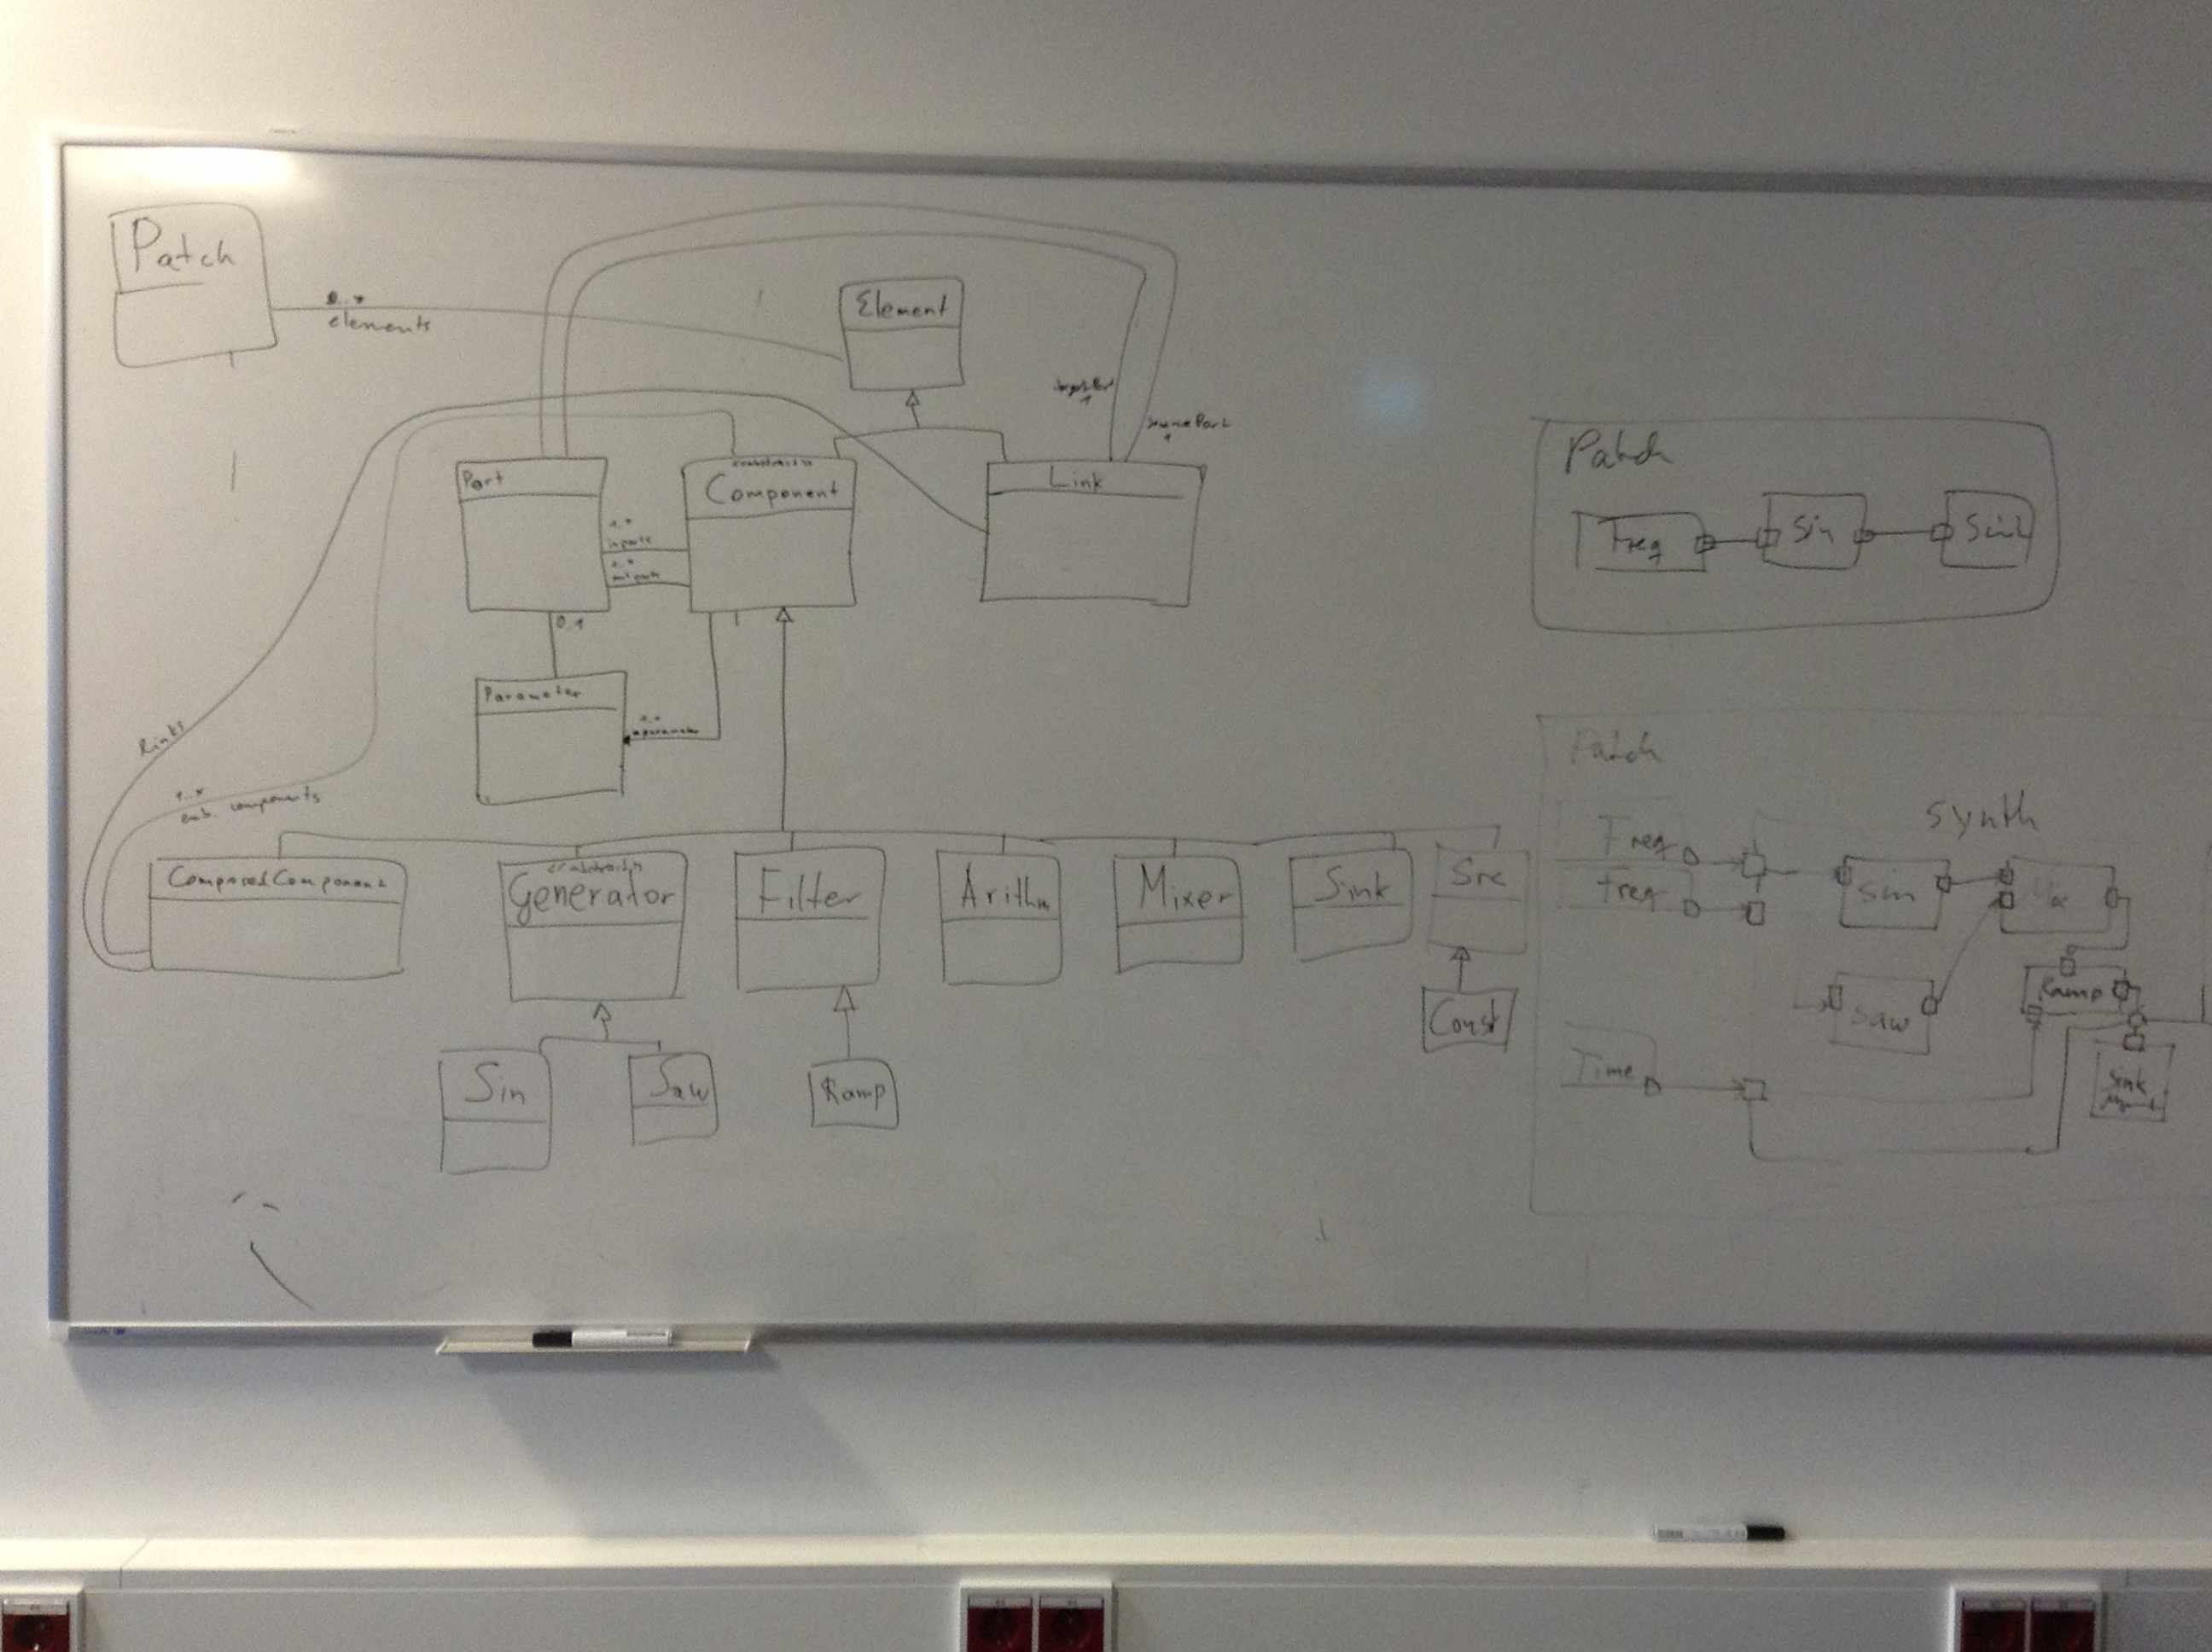 Patch
elements
Element
targetPort
1
sourcePort
1
Port
Component
Link
1..*
inports
1..*
outports
0..1
Parameter
1..*
links
1..*
emb. components
ComposedComponent
Generator
Filter
Arithm
Mixer
Sink
Src
Sin
Saw
Ramp
Const
Patch
Freq
Sin
Sink
Patch
synth
Freq
Freq
Sin
Saw
Ramp
Time
Sink